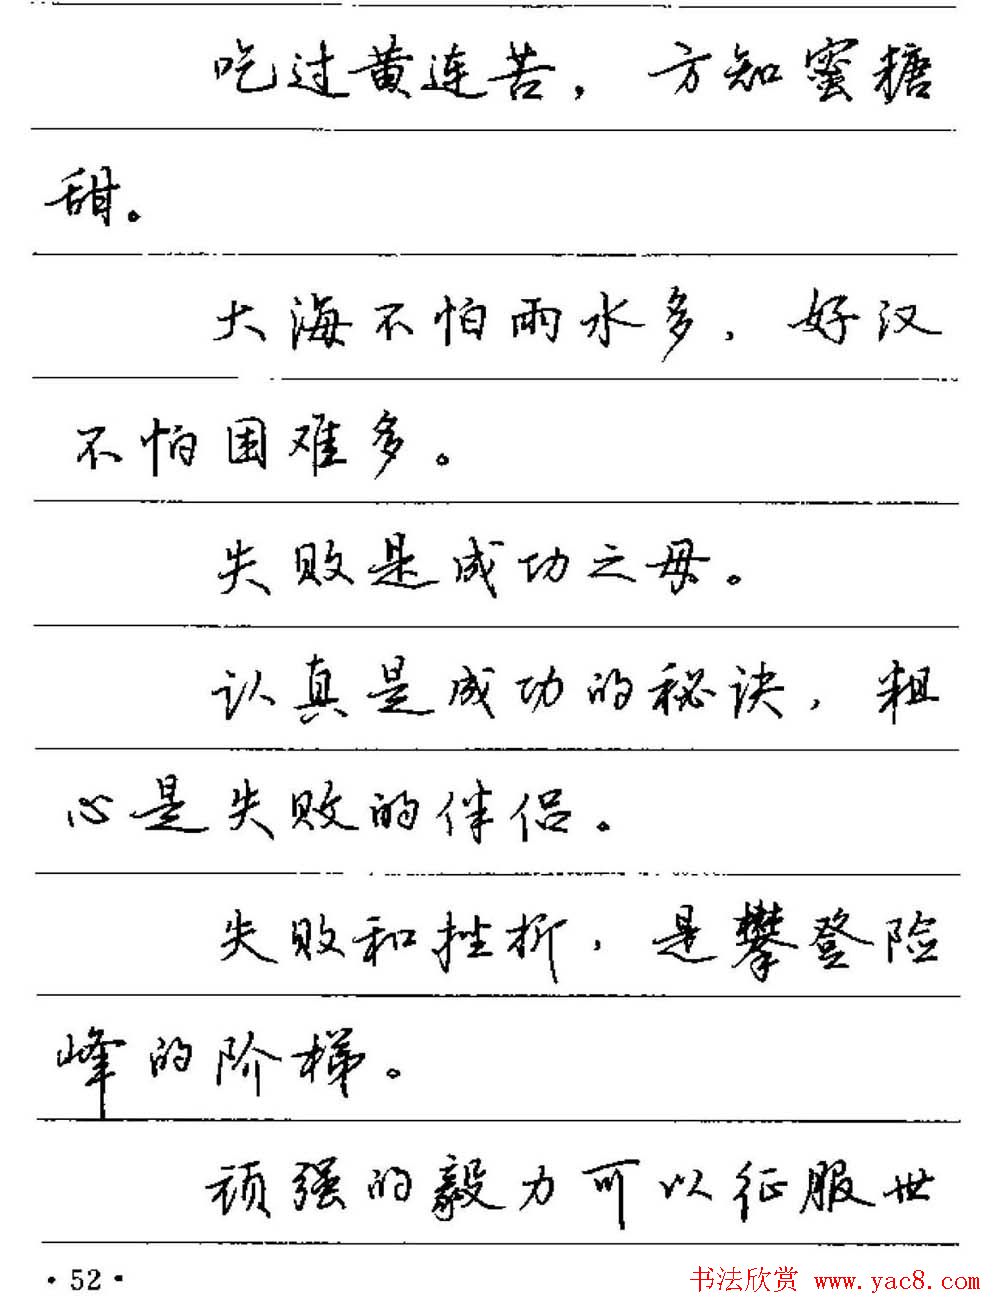 吃过黄连苦，方知蜜糖
甜。
大海不怕雨水多，好汉
不怕困难多。
失败是成功之母。
认真是成功的秘诀，粗
心是失败的伴侣。
失败和挫折，是攀登险
峰的阶梯。
顽强的毅力可以征服世
·52·
书法欣赏 www.yac8.com